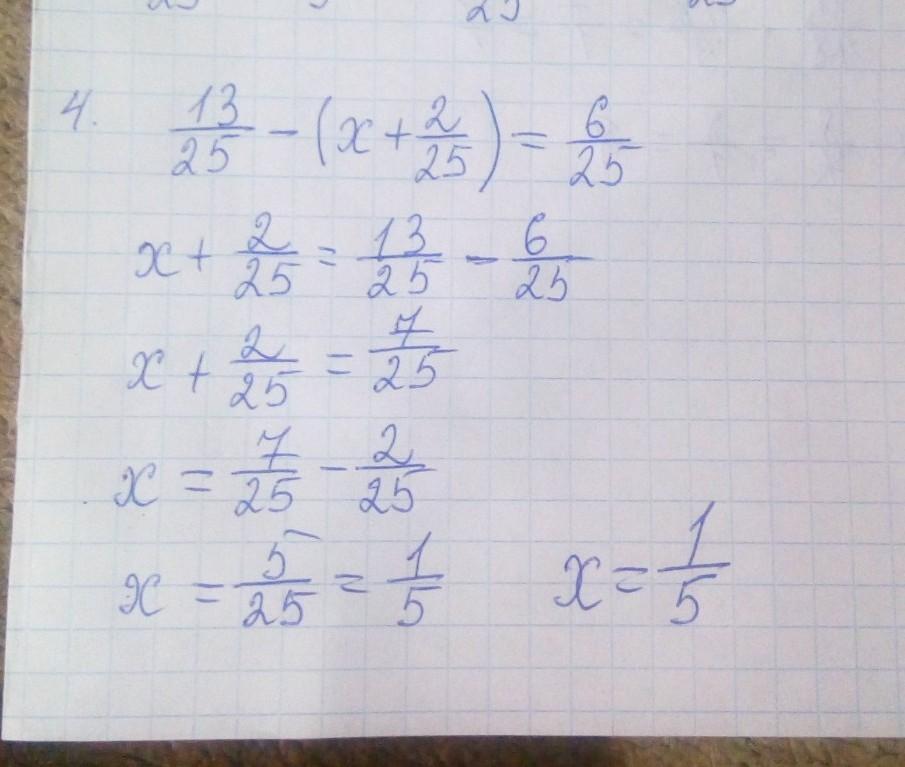 4. 13/25 - (x + 2/25) = 6/25
x + 2/25 = 13/25 - 6/25
x + 2/25 = 7/25
x = 7/25 - 2/25
x = 5/25 = 1/5 x = 1/5